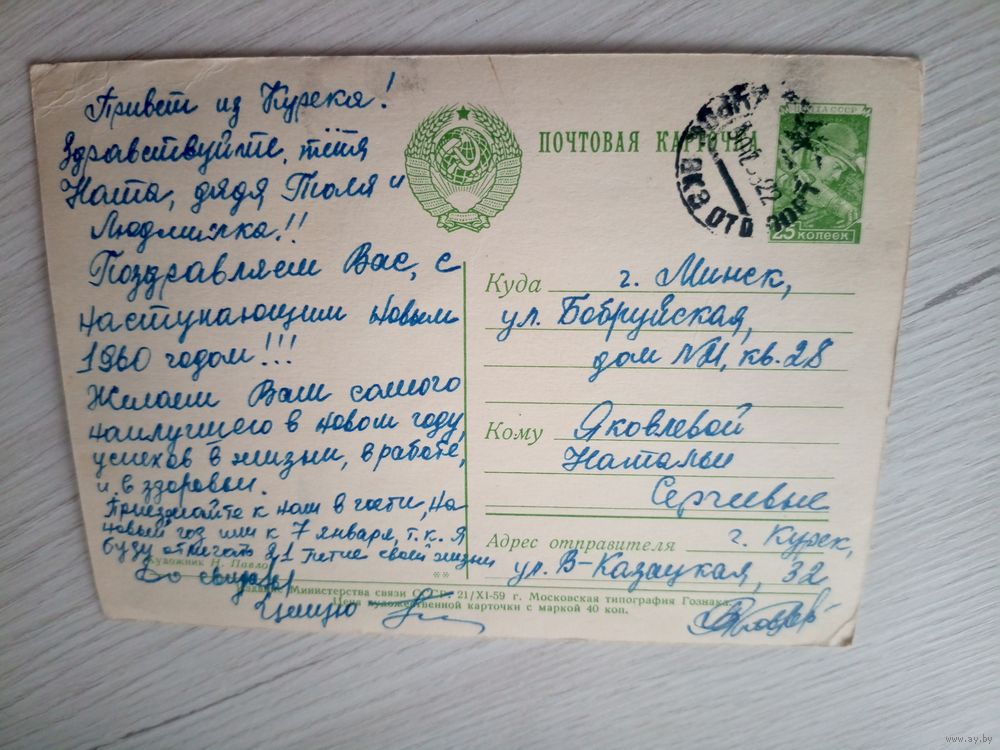 Привет из Курска!
Здравствуйте, тётя
Ната, дядя Толя и
Людмилка!!
Поздравляем Вас, с
наступающим новым
1960 годом!!!
Желаем Вам самого
наилучшего в новом году,
успехов в жизни, в работе,
и в здоровьи.
Приезжайте к нам в гости, на
новый год или к 7 января, т.к. я
буду отмечать 21 летие своей жизни
До свид
Целую
Художник Н. Павлов
ПОЧТОВАЯ КАРТОЧКА
ПОЧТА СССР
25 КОПЕЕК
Куда г. Минск,
ул. Бобруйская,
дом №11, кв. 28
Кому Яковлевой
Натальи
Сергиевне
Адрес отправителя г. Курск,
ул. В-Казацкая, 32
Издание Министерства связи СССР. 21/XI-59 г. Московская типография Гознака.
Цена художественной карточки с маркой 40 коп.
www.ay.by